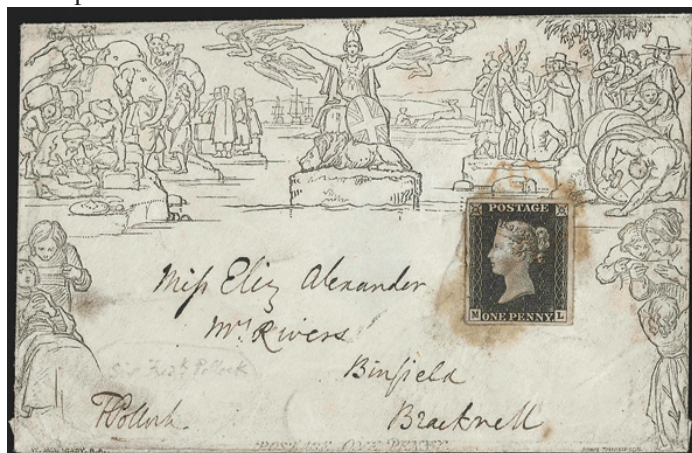 POSTAGE
M ONE PENNY L
Miss Eliz Alexander
Mrs Rivers
Binfield
Bracknell
Sir Fredk Pollock
FPollock
W. MULREADY, R.A.
JOHN THOMPSON